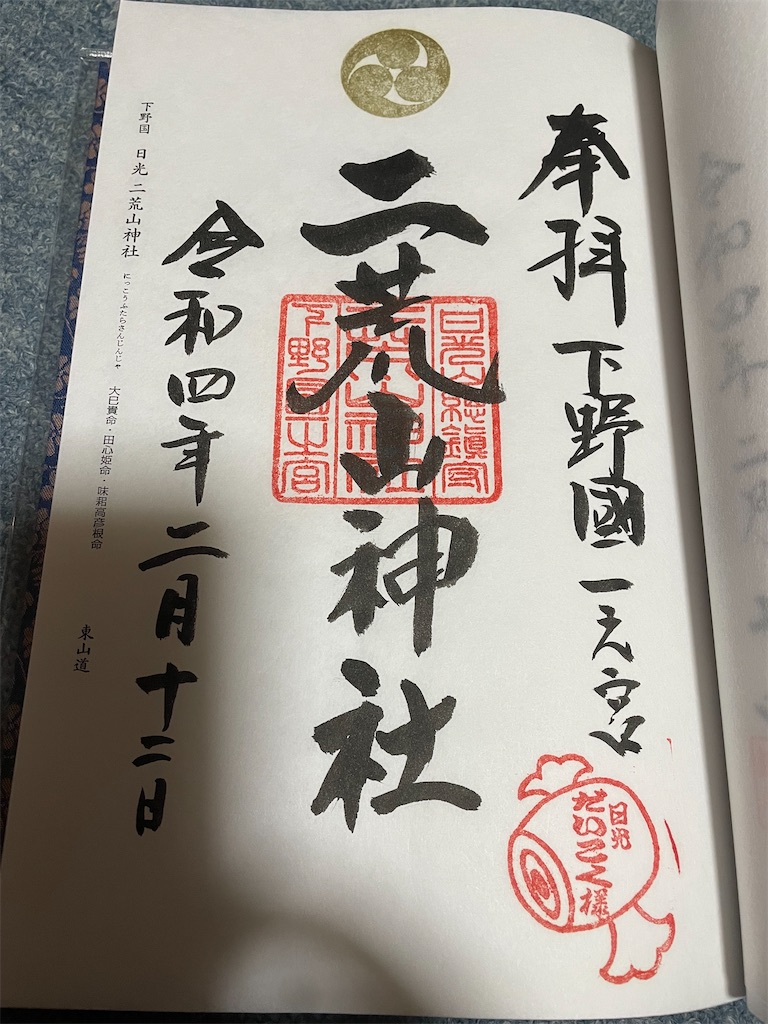 奉拝 下野國一之宮
日光総鎮守
二荒山神社
下野国一之宮
二荒山神社
令和四年二月十二日
下野国 日光二荒山神社 にっこうふたらさんじんじゃ 大己貴命・田心姫命・味耜高彦根命 東山道
日光
だいこく様